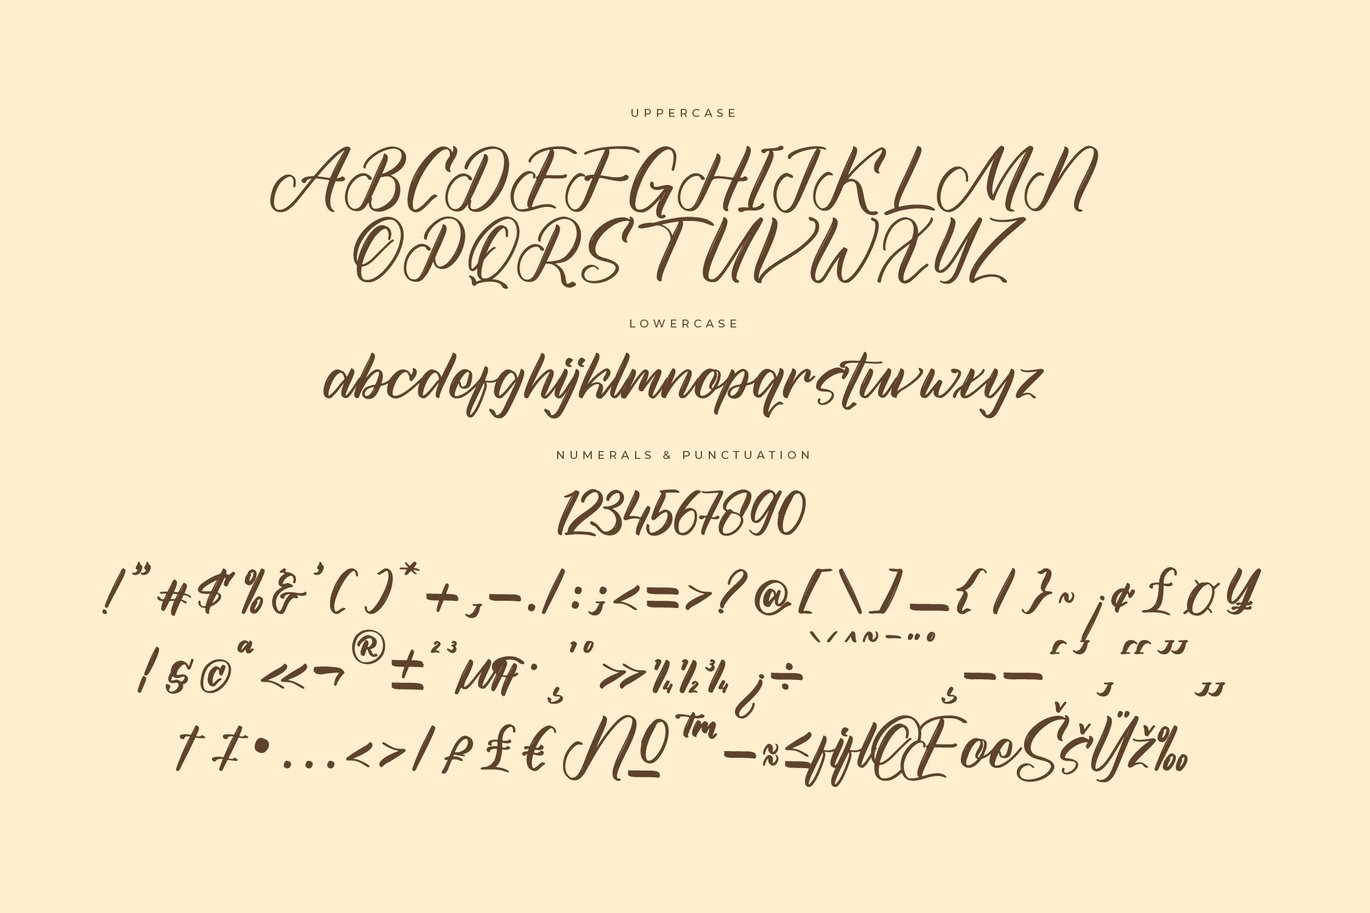 UPPERCASE
ABCDEFGHIJKLMN
OPQRSTUVWXYZ
LOWERCASE
abcdefghijklmnopqrstuvwxyz
NUMERALS & PUNCTUATION
1234567890
!"#$%&'()*+,-./:;<=>?@[\]_{|}~¡¢£¤¥
¦§©ª«¬®±²³µ¶·¸¹º»¼½¾¿÷`´ˆ˜¯¨˚¸–—‘’‚“”„
†‡•…‹›⁄₣₤€№™−≈≤fifflŒœŠšŸž‰